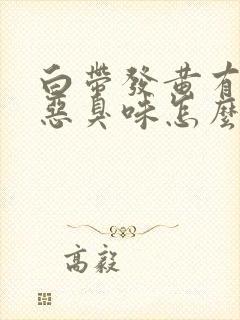 白帶發黃有
惡臭味怎麼
高毅